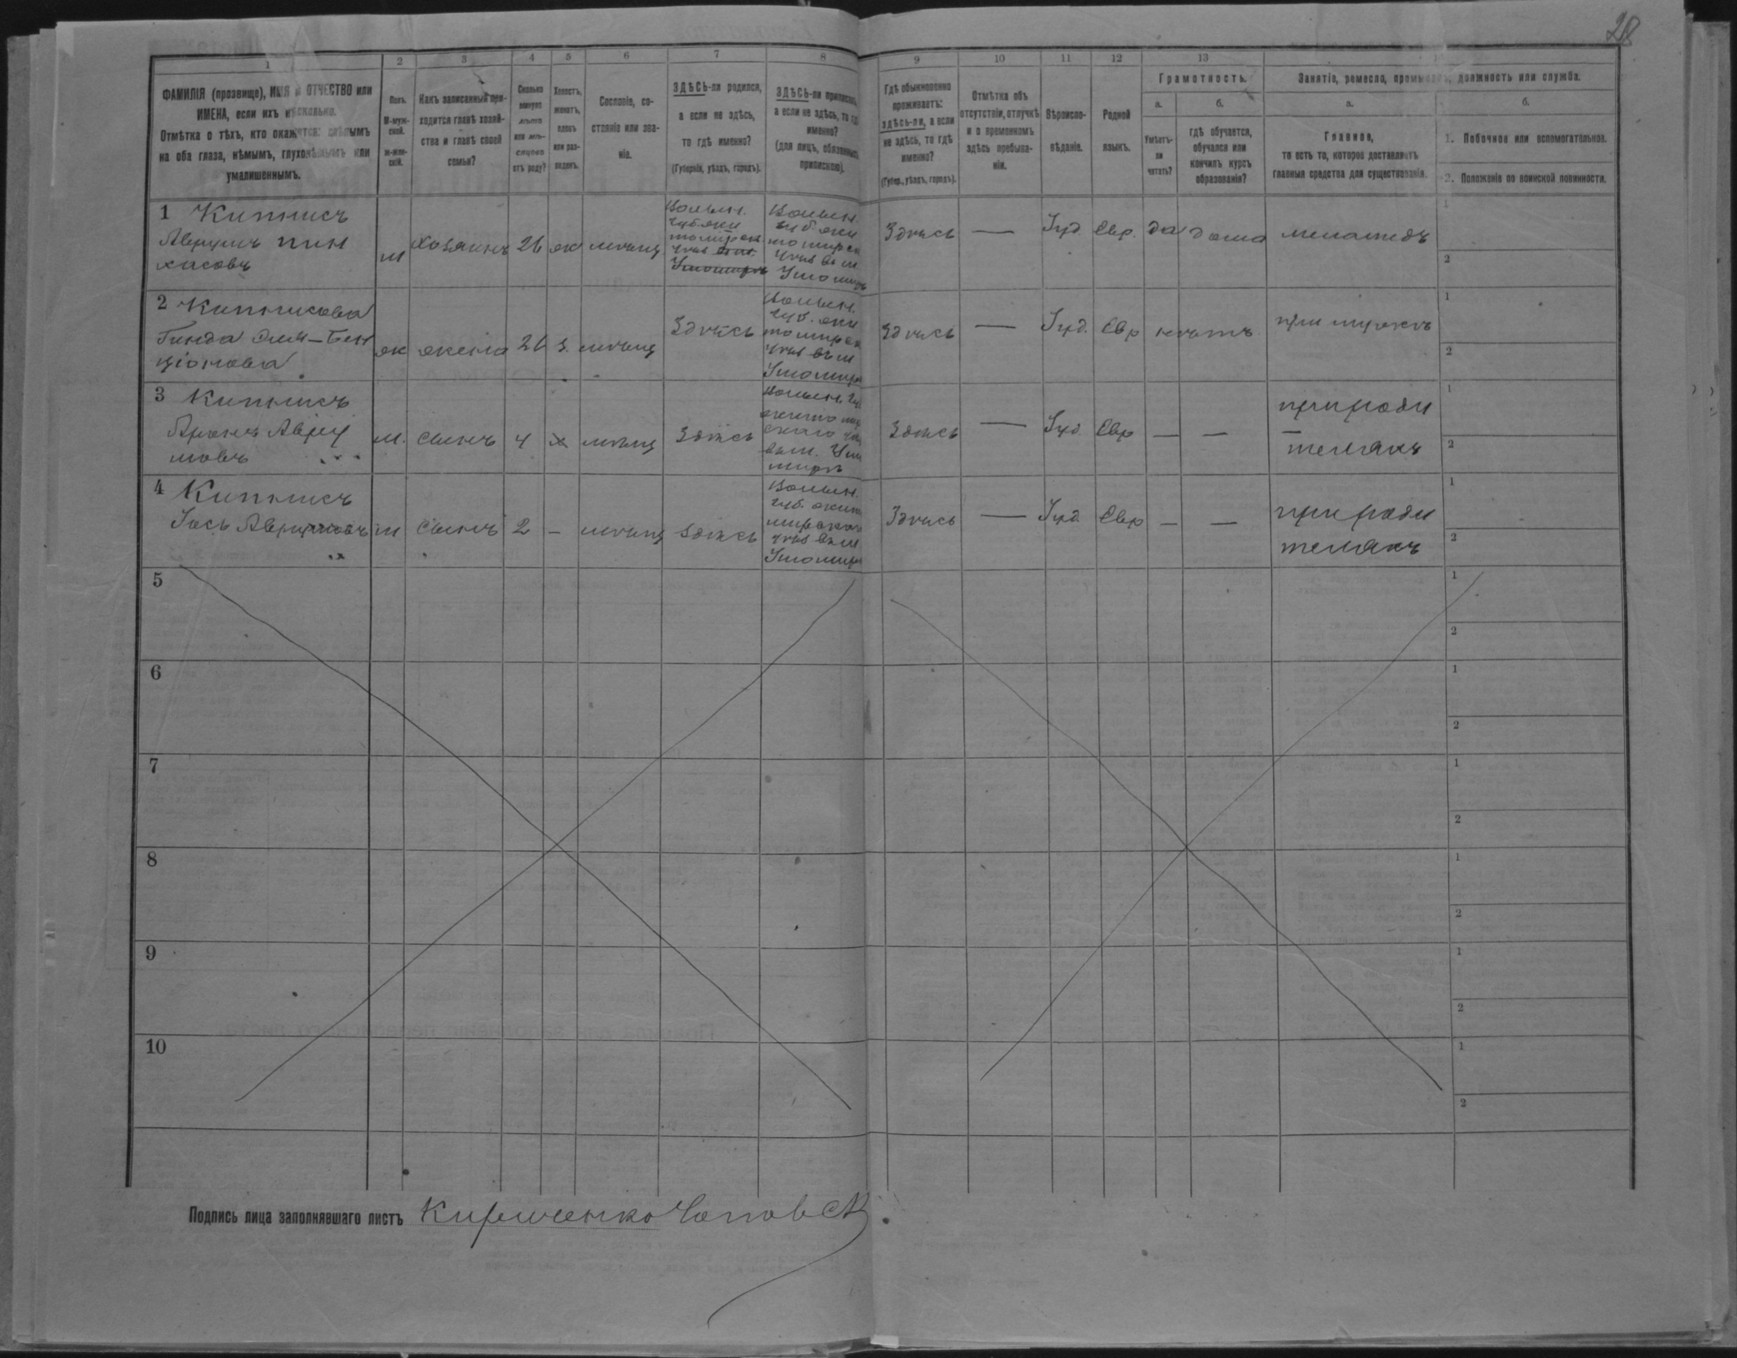 28
1 2 3 4 5 6 7 8 9 10 11 12 13
ФАМИЛІЯ (прозвище), ИМЯ и ОТЧЕСТВО или
ИМЕНА, если ихъ нѣсколько.
Отмѣтка о тѣхъ, кто окажется: слѣпымъ
на оба глаза, нѣмымъ, глухонѣмымъ или
умалишеннымъ.
Полъ.
М-муж-
ской.
Ж-жен-
скій.
Какъ записанный при-
ходится главѣ хозяй-
ства и главѣ своей
семьи?
Сколько
минуло
лѣтъ
или мѣ-
сяцевъ
отъ роду?
Холостъ,
женатъ,
вдовъ
или раз-
веденъ.
Сословіе, со-
стояніе или зва-
ніе.
ЗДѢСЬ-ли родился,
а если не здѣсь,
то гдѣ именно?
(Губернія, уѣздъ, городъ).
ЗДѢСЬ-ли приписанъ,
а если не здѣсь, то гдѣ
именно?
(для лицъ, обязанныхъ
припискою).
Гдѣ обыкновенно
проживаетъ:
здѣсь-ли, а если
не здѣсь, то гдѣ
именно?
(Губер., уѣздъ, городъ).
Отмѣтка объ
отсутствіи, отлучкѣ
и о временномъ
здѣсь пребыва-
ніи.
Вѣроиспо-
вѣданіе.
Родной
языкъ.
Грамотность.
а.
Умѣетъ-
ли
читать?
б.
гдѣ обучается,
обучался или
кончилъ курсъ
образованія?
Занятіе, ремесло, промыселъ, должность или служба.
а.
Главное,
то есть то, которое доставляетъ
главныя средства для существованія.
б.
1. Побочное или вспомогательное.
2. Положеніе по воинской повинности.
1 Кипнисъ
Аврумъ Пин
хасовъ
м хозяинъ 26 ж мѣщ
Волын.
губ. жи
томирск
уѣзд
Волын.
губ. жи
томирск
уѣзд въ м
Ушомиръ
Здѣсь — Іуд Евр да дома меламедъ
1
2
2 Кипнисова
Бен
ціонова
ж жена 26 з. мѣщ Здѣсь
Волын.
губ. жи
томирск
уѣзд въ м
Ушомиръ
Здѣсь — Іуд. Евр нѣтъ при мужѣ
1
2
3 Кипнисъ
Аронъ Авру
мовъ
м. сынъ 4 х мѣщ Здѣсь
Здѣсь — Іуд. Евр — —
при роди
теляхъ
1
2
4 Кипнисъ
Іось Аврумовъ м сынъ 2 — мѣщ здѣсь
Волын.
губ. жито
мирскаго
уѣзд въ м.
Ушомиръ
Здѣсь — Іуд. Евр — —
при роди
теляхъ
1
2
5
1
2
6
1
2
7
1
2
8
1
2
9
1
2
10
1
2
Подпись лица заполнявшаго листъ Кириченко